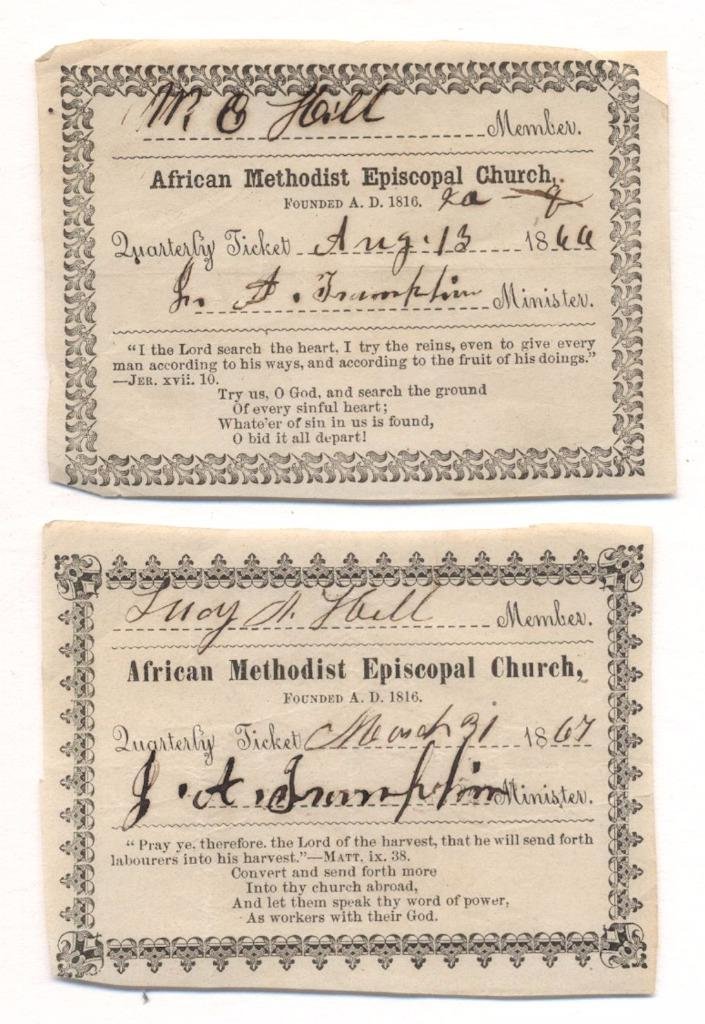 M C Hill Member.
African Methodist Episcopal Church,
FOUNDED A. D. 1816.
Quarterly Ticket Aug. 13 1866
A. Trumpline Minister.
“I the Lord search the heart, I try the reins, even to give every
man according to his ways, and according to the fruit of his doings.”
—JER. xvii. 10.
Try us, O God, and search the ground
Of every sinful heart;
Whate'er of sin in us is found,
O bid it all depart!
Lucy A. Hill Member.
African Methodist Episcopal Church,
FOUNDED A. D. 1816.
Quarterly Ticket March 31 1867
J. A. Minister.
“Pray ye, therefore, the Lord of the harvest, that he will send forth
labourers into his harvest.”—MATT. ix. 38.
Convert and send forth more
Into thy church abroad,
And let them speak thy word of power,
As workers with their God.